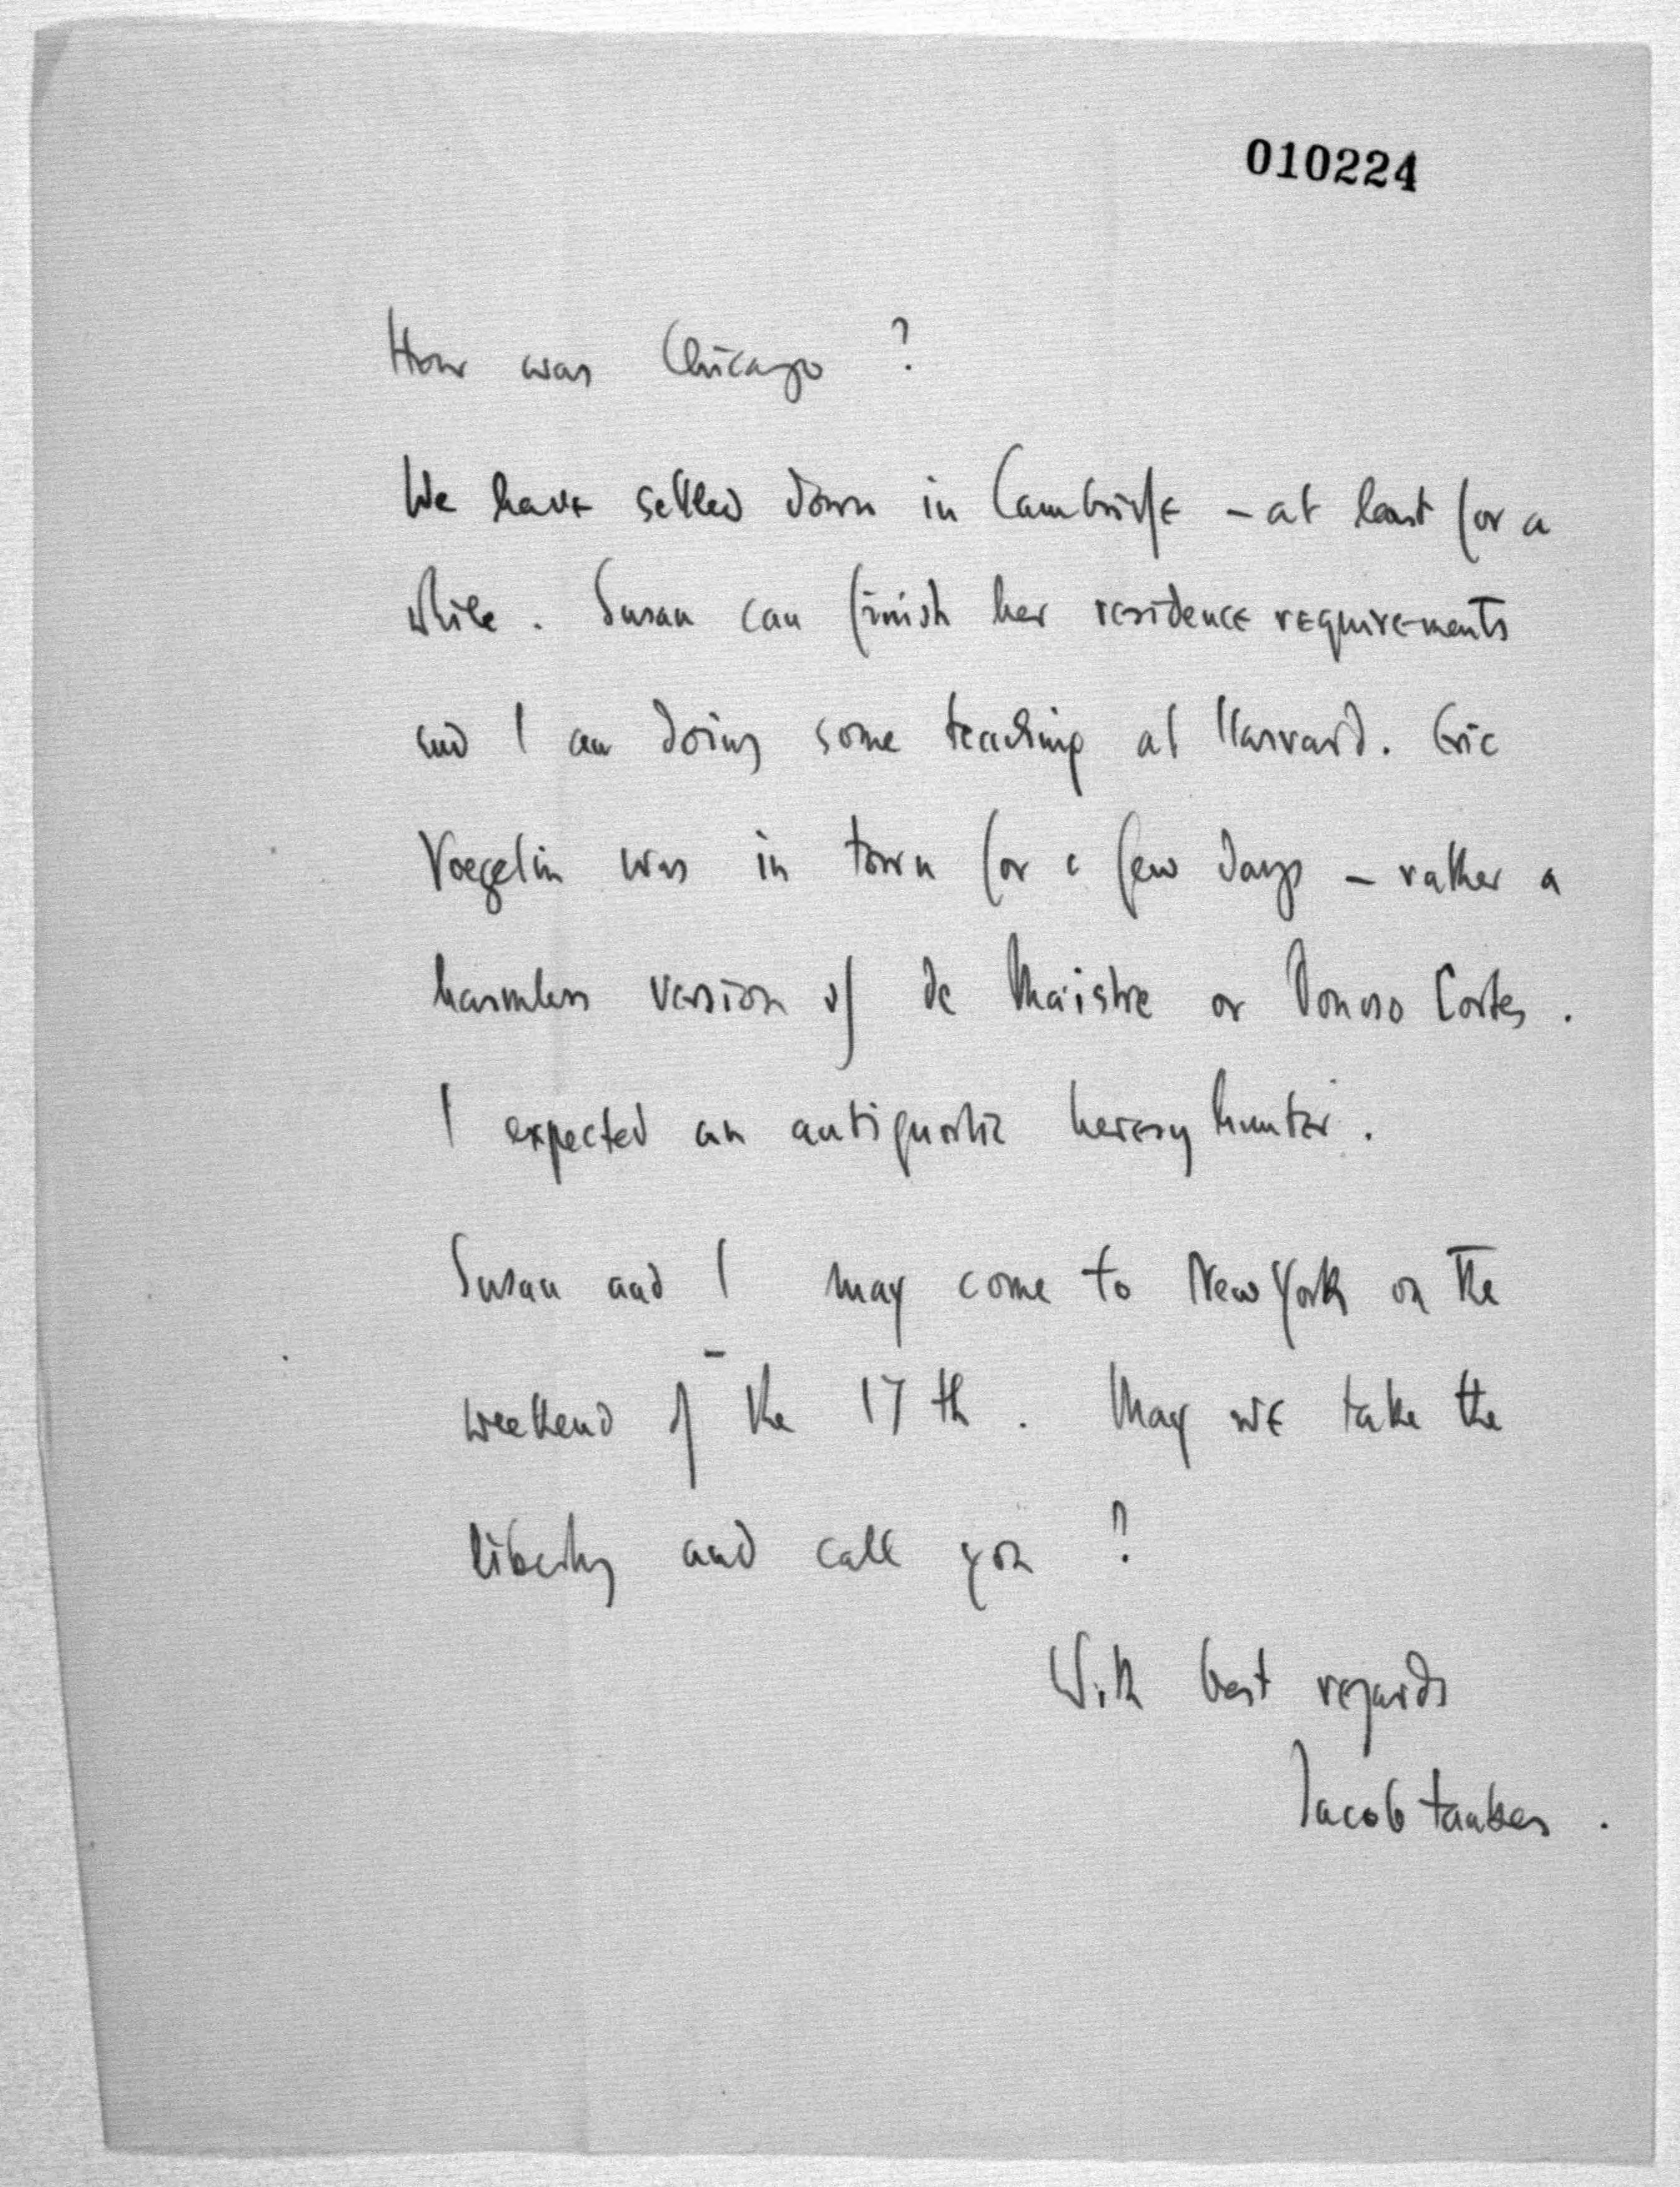 010224
How was Chicago ?
We have settled down in Cambridge – at least for a
while . Susan can finish her residence requirements
and I am doing some teaching at Harvard. Eric
Voegelin was in town for a few days – rather a
harmless version of de Maistre or Donoso Cortes .
I expected an antignostic heresy hunter .
Susan and I may come to New York on the
weekend of the 17 th . May we take the
liberty and call you ?
With best regards
Jacob Taubes .